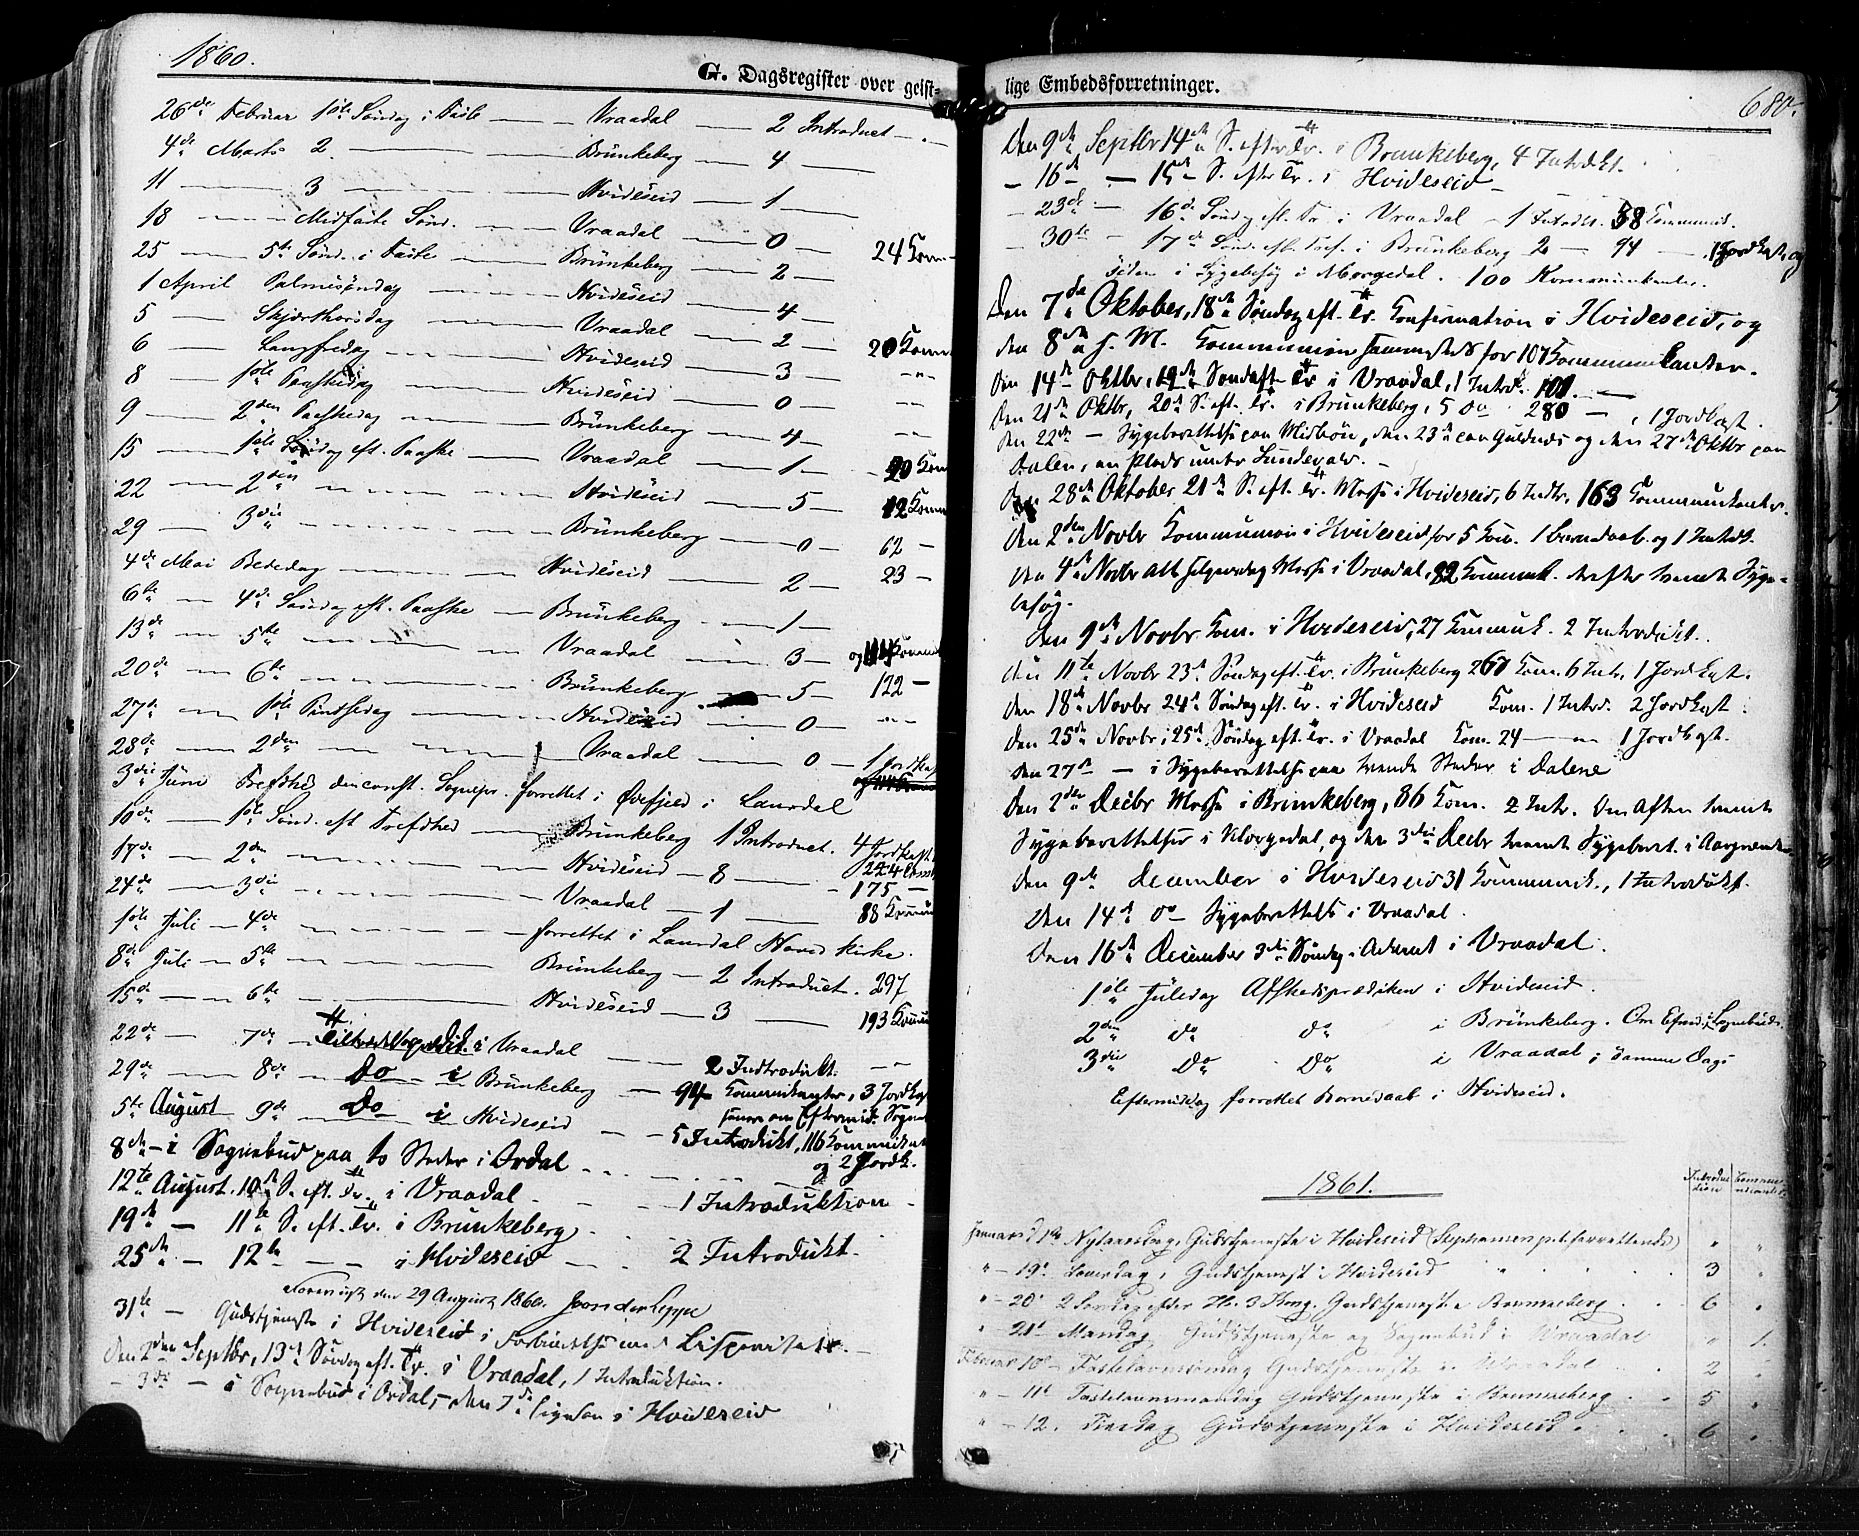 1860.
G. Dagsregister over geist-
26de Februar 1ste Søndag i Faste — Vraadal — 2 Introduct —
4de Marts 2 — Brünkeberg — 4 —
11 — 3 — Hvideseid — 1 —
18 — Midfaste Sønd. — Vraadal — 0 — 24 Kom
25 — 5te Sønd. i Faste — Brünkeberg — 2 —
1 April Palmesøndag — Hvideseid — 4 —
5 — Skjærthorsdag — Vraadal — 2 — 20 Kom
6 — Langfredag — Hvideseid — 3 — „ „
8 — 1ste Paaskedag — Hvideseid — 0 — „ „
9 — 2den Paaskedag — Brünkeberg — 4 — „ „
15 — 1ste Søndag eft. Paaske — Vraadal — 1 — Kom
22 — 2den — Hvideseid — 5 — 12 Komm
29 — 3die — Brünkeberg — 0 — 62 —
4de Mai Bededag — Hvideseid — 2 — 23 —
6te — 4de Søndag eft. Paaske — Brünkeberg — 1 —
13de — 5te — Vraadal — 3 — og Komm
20de — 6te — Brünkeberg — 5 — 122 —
27de — 1ste Pintsedag — Hvideseid — 0 — „ „
28de — 2den — Vraadal — 0 — 1 Jordkast
3die Juni Trefdhed den const. Sognepr. forrettet i Øvefjeld i Laurdal
10de — 1ste Sønd. eft Trefdhed — Brünkeberg 1 Introduct. 4 Jordkast
17de — 2den — Hvideseid — 8 — 224 Com
24de — 3die — Vraadal — 1 — 175 —
1ste Juli — 4de — forrettet i Laurdal Hoved Kirke. 88 Kommu
8de Juli — 5te — Brünkeberg — 2 Introduct. 297
15de — 6te — Hvideseid — 3 — 193 Kommu
22de — 7de — i Vraadal — 2 Indtrodukt. —
29de — 8de — Do i Brünkeberg — 94 Kommunikanter, 3 Jordkast
5te August 9de — Do i Hvideseid — 5 Introdukt, 116 Kommunikant
og 2 Jordk.
8de — i Sognebud paa to Steder i Ordal
12te August. 10de S. eft. Tr. i Vraadal — 1 Introduktion
19de — 11te S. eft. Tr. i Brunkeberg
25de — 12te — i Hvideseid — 2 Introdukt.
den 29 August 1860.
31te — Gudstjeneste i Hvideseid i Forbindelse med
Den 2den Septbr, 13de Søndag eft. Tr. i Vraadal, 1 Introduktion.
— 3die — i Sognebud i Ordal, — den 7de i Hvideseid
lige Embedsforretninger.
680.
Den 9de Septbr 14de S. efter Tr. i Brunkeberg, 4 Introdukt.
— 16de — 15de S. efter Tr. i Hvideseid —
— 23de — 16de Søndag eft. Tr i Vraadal — 1 Introd. 38 Kommunik.
— 30te — 17de Sønd. eft. Tref. i Brunkeberg 2 — 94 — 1 Jordkast, og
siden i Sygebesøg i Morgedal. 100 Kommunikanter.
Den 7de Oktober, 18de Søndag eft. Tr. Confirmation i Hvideseid, og
den 8de s. M. Kommunion sammesteds for 107 Kommunikanter.
Den 14de Oktbr, 19de Søndag eft Tr i Vraadal, 1 Intrd. 101. —
Den 21de Oktbr, 20de S. eft. Tr. i Brunkeberg, 5 do 280 —, 1 Jordkast.
Den 22de — Sygeberettelse paa Midbøe, den 23de paa og den 27de Oktbr paa
Dalen, en Plads under Lundevald. —
Den 28de Oktober 21de S. eft. Tr. Messe i Hvideseid, 6 Indtr. 163 Kommunikanter.
Den 2den Novbr Kommunion i Hvideseid for 5 Kom. 1 Barnedaab og 1 Introd.
Den 4de Novbr Allehelgensdag Messe i Vraadal, 82 Kommunik. derefter trende Syge-
besøg.
Den 9de Novbr Kom. i Hvideseid, 27 Kommunik. 2 Introdukt.
Den 11te Novbr 23de Søndag eft. Tr. i Brunkeberg 267 Kom. 6 Intr. 1 Jordkast.
Den 18de Novbr 24de Søndag eft. Tr. i Hvideseid Kom. 1 Intrd. 2 Jordkast.
Den 25de Novbr, 25de Søndag eft. Tr. i Vraadal Kom. 24 — 1 Jordkast.
Den 27de — i Sygeberettelse paa trende Steder i Dalene
Den 2den Decbr Messe i Brunkeberg, 86 Kom. 2 Intr. Om Aften trende
Sygeberettelser i Morgedal, og den 3die Decbr trende Sygeberet. i
Den 9de December i Hvideseid 31 Kommunik., 1 Introdukt.
Den 14de do Sygeberettels i Vraadal.
Den 16de December 3die Søndag i Advent i Vraadal.
1ste Juledag Afskedsprædiken i Hvideseid.
2den do do i Brünkeberg. Om Efmd. i Sognebud.
3die Do Do i Vraadal; samme Dags
Eftermiddag forrettet Barnedaab i Hvideseid.
1861.
Introduc-
tion
Kommu-
nikanter
Januar d 1ste Nytaarsdag, Gudstjeneste i Hvideseid ( forrettende) „ „
„ — 19de Løverdag, Gudstjeneste i Hvideseid 3 „
„ — 20de 2 Søndag efter H. 3 Kong. Gudstjeneste i Brunkeberg 6 „
„ — 21de Mandag, Gudstjeneste og Sognebud i Vraadal „ 1.
Februar 10de — Fastelavnssøndag Gudstjeneste i Vraadal 2 „
„ — 11te Fastelavnsmandag Gudstjeneste i Brunkeberg 5 „
„ — 12. Tirsdag Gudstjeneste i Hvideseid 6 „